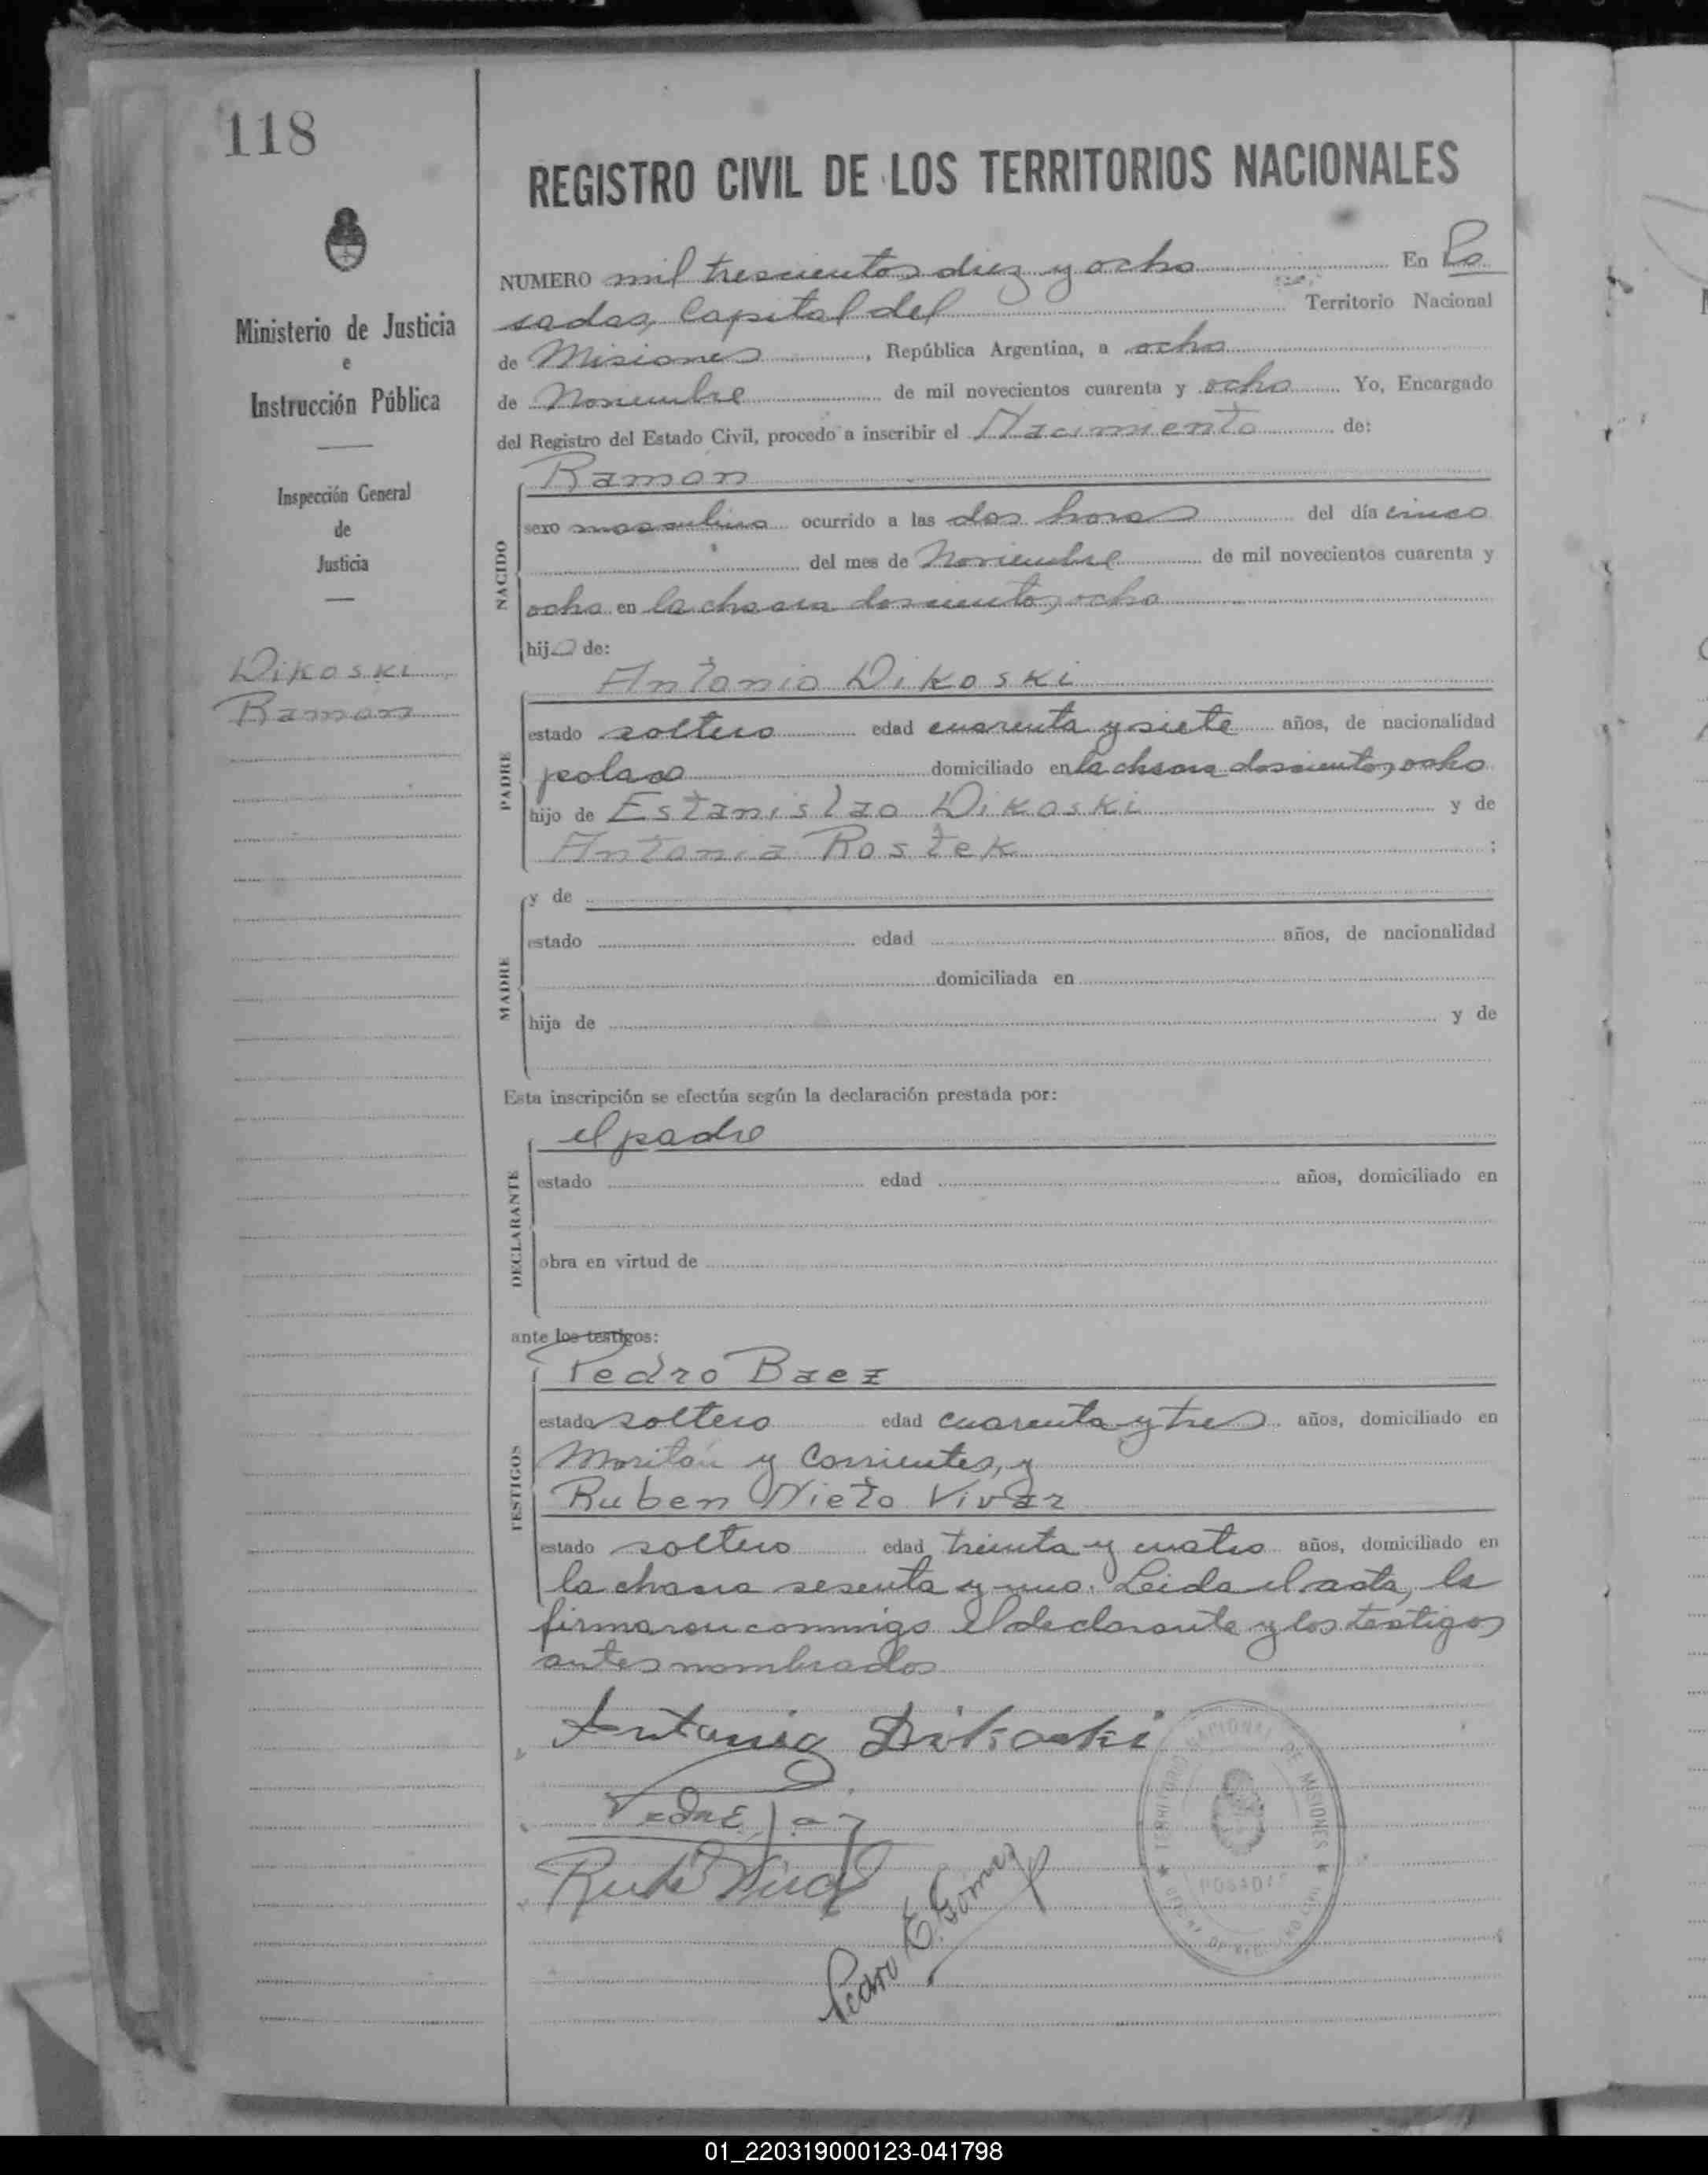 118
REGISTRO CIVIL DE LOS TERRITORIOS NACIONALES
Ministerio de Justicia
e
Instrucción Pública
Inspección General
de
Justicia
Dikoski
Ramon
NUMERO mil trescientos diez y ocho En Po
sadas, Capital del Territorio Nacional
de Misiones, República Argentina, a ocho
de Noviembre de mil novecientos cuarenta y ocho Yo, Encargado
del Registro del Estado Civil, procedo a inscribir el Nacimiento de:
NACIDO
Ramon
sexo masculino ocurrido a las dos horas del día cinco
del mes de Noviembre de mil novecientos cuarenta y
ocho en la chacra doscientos ocho
hijo de:
PADRE
Antonio Dikoski
estado soltero edad cuarenta y siete años, de nacionalidad
polaco domiciliado en la chacra doscientos ocho
hijo de Estanislao Dikoski y de
Antonia Rostek ;
MADRE
y de
estado edad años, de nacionalidad
domiciliada en
hija de y de
Esta inscripción se efectúa según la declaración prestada por:
DECLARANTE
el padre
estado edad años, domiciliado en
obra en virtud de
ante los testigos:
TESTIGOS
Pedro Baez
estado soltero edad cuarenta y tres años, domiciliado en
y Corrientes, y
Ruben Nieto Vivar
estado soltero edad treinta y cuatro años, domiciliado en
la chacra sesenta y uno. Leida el acta, la
firmaron conmigo el declarante y los testigos
antes nombrados
Antonio Dikoski
Pedro E. Gomez
TERRITORIO NACIONAL DE MISIONES
POSADAS
01_220319000123-041798